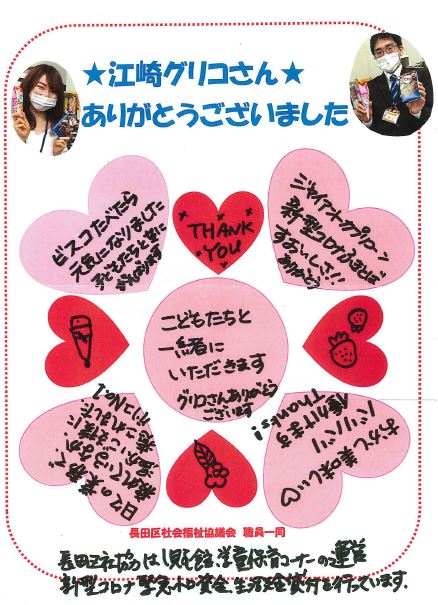 ★江崎グリコさん★
ありがとうございました
ビスコたべたら
元気になりました
子どもたちと共に
がんばります
THANK
YOU
ジャイアントカプリコーン
新型コロナがきえれば
すおいしす!!
ありがとう
こどもたちと
一緒に
いただきます
グリコさんありがとう
ございます
日々の業務で
疲れているなか
No.1
おかし美味しい♡
バリバリ
働けます
Thanks!
長田区社会福祉協議会 職員一同
長田区社協は児童館、学童保育コーナーの運営
新型コロナ 貸付を行っています。